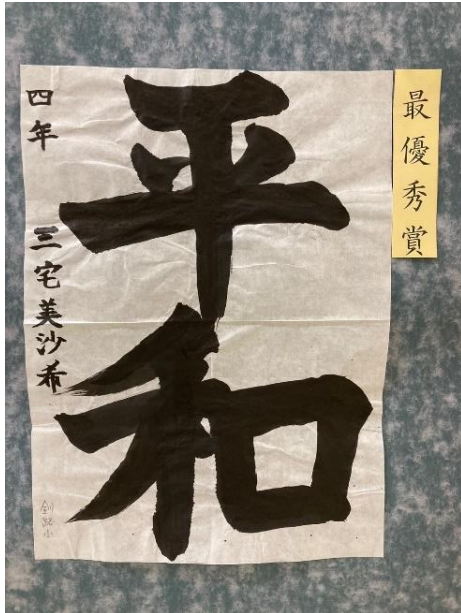 最優秀賞
平和
四年 三宅美沙希
釧路小